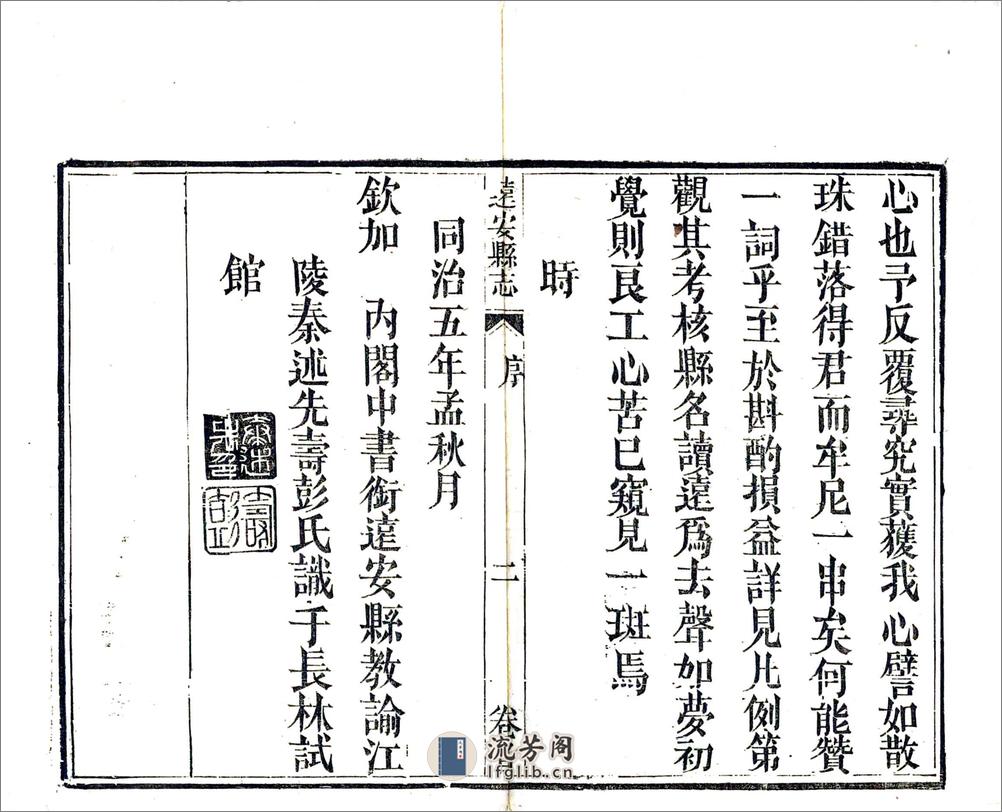 心也予反覆尋究實獲我心譬如散
珠錯落得君而牟尼一串矣何能贊
一詞乎至於斟酌損益詳見凡例第
觀其考核縣名讀遠爲去聲如夢初
覺則良工心苦已窺見一斑焉
時
遠安縣志 序 二 卷
同治五年孟秋月
欽加 內閣中書銜遠安縣教諭江
陵秦述先壽彭氏識于長林試
館
流芳阁
lfglib.cn